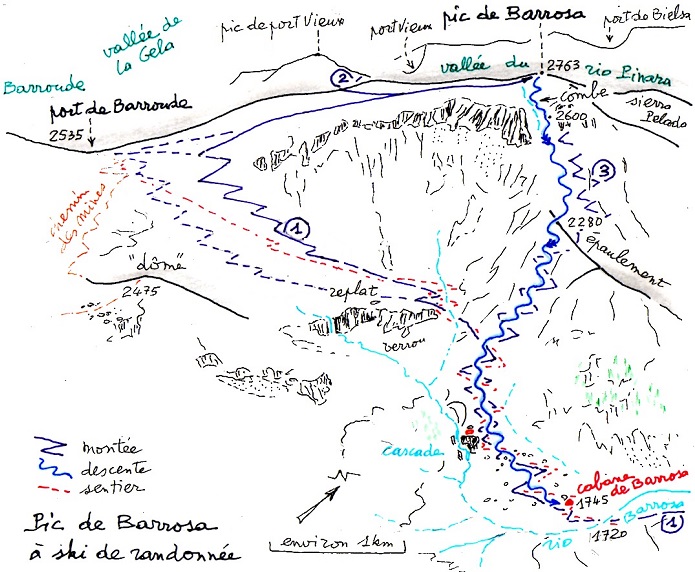 pic de Barrosa
port de Bielsa
vallée de
la Gela
pic de port Vieux
port vieux
vallée du
rio Pinara
2763
②
Barroude
port de Barroude
2535
combe
2600
sierra
Pelada
③
chemin
des mines
①
2280
épaulement
"dôme"
2475
replat
verrou
cascade
montée
descente
sentier
cabane
de Barrosa
1745
Barrosa
①
1720
rio
Pic de Barrosa
à ski de randonnée
environ 1km